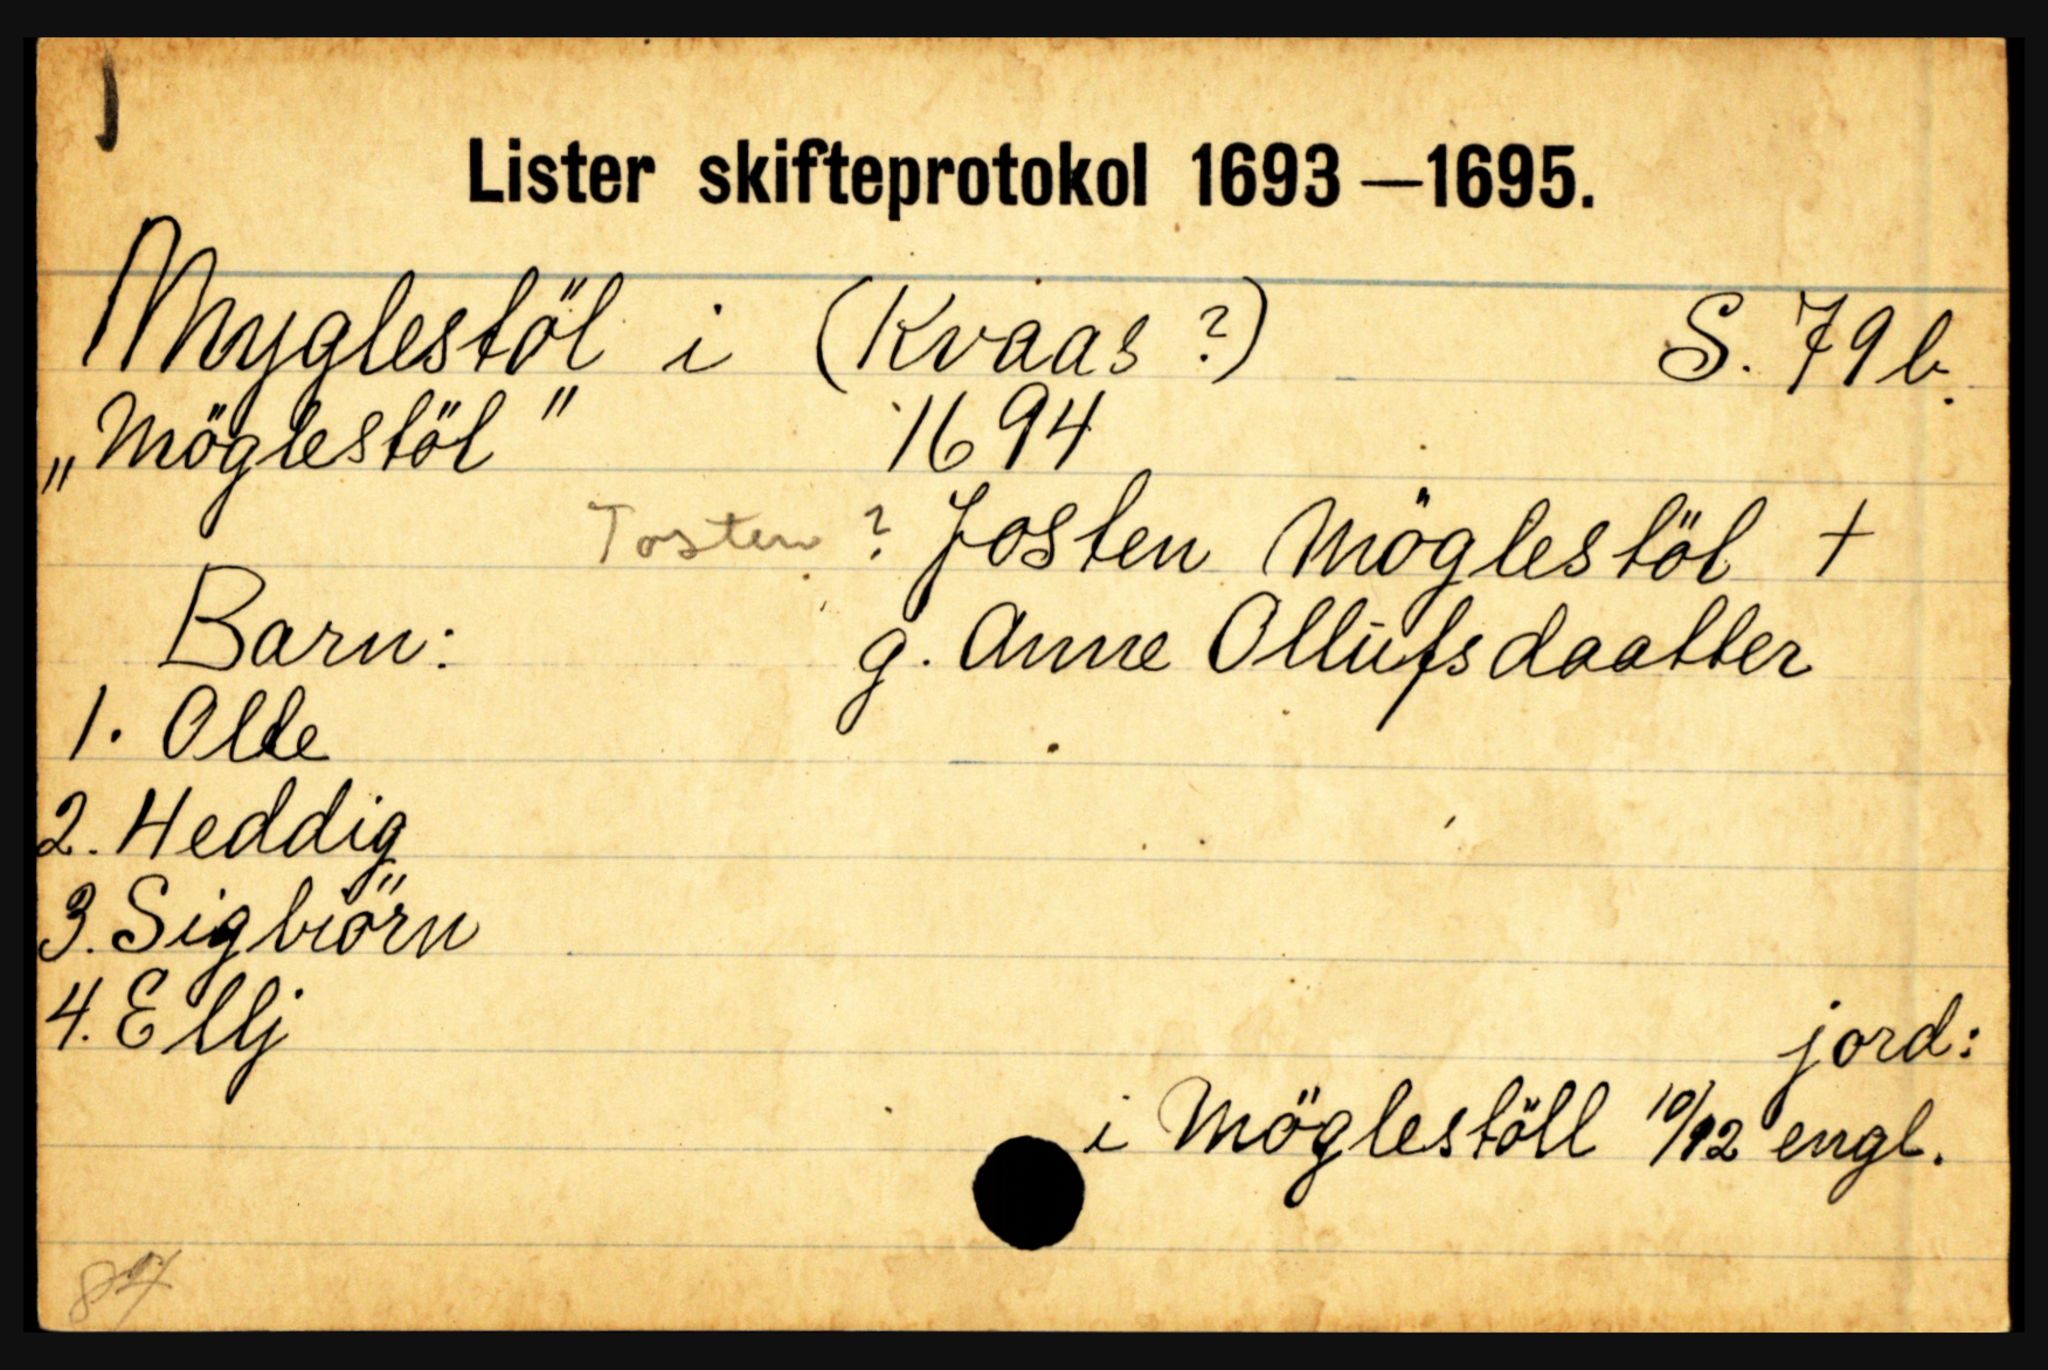 Lister skifteprotokol 1693—1695.
Myglestöl i (Kvaas ?) S. 79 b.
„Möglestöl" 1694
Tosten ? Josten Möglestöl +
Barn: g. Anne Ollufsdaatter
1. Olle
2. Heddig
3. Sigbiörn
4. Ellj
jord:
i Möglestöll 10/12 engl.